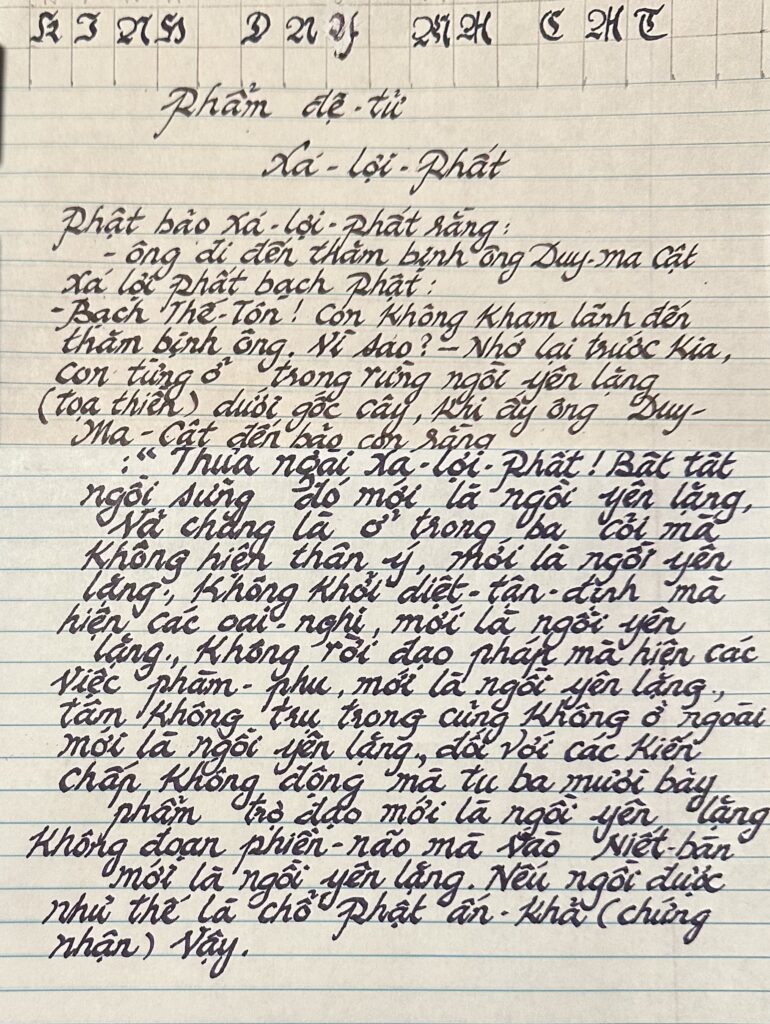 K I N H D U Y M A C A T
Phẩm đệ-tử
Xá-lợi-Phất
Phật bảo Xá-lợi-Phất rằng:
- ông đi đến thăm bịnh ông Duy-ma Cật
Xá lợi Phất bạch Phật:
- Bạch Thế-Tôn! Con Không Kham lãnh đến
thăm bịnh ông. Vì sao? - Nhớ lại trước Kia,
con từng ở trong rừng ngồi yên lặng
(tọa thiền) dưới gốc cây, Khi ấy ông Duy-
Ma-Cật đến bảo con rằng
:" Thưa ngài Xá-lợi-Phất! Bất tất
ngồi sững đó mới là ngồi yên lặng,
Vả chăng là ở trong ba cỏi mà
Không hiện thân ý, mới là ngồi yên
lặng., Không Khởi diệt-tận-định mà
hiện các oai-nghi, mới là ngồi yên
lặng., Không rời đạo pháp mà hiện các
Việc phàm-phu, mới là ngồi yên lặng.,
tâm Không trụ trong củng Không ở ngoài
mới là ngồi yên lặng., đối với các Kiến
chấp Không động mà tu ba mươi bảy
phẩm trợ đạo mới là ngồi yên lặng
Không đoạn phiền-não mà vào Niết-bàn
mới là ngồi yên lặng. Nếu ngồi được
như thế là chổ Phật ấn-Khả (chứng
nhận) Vậy.